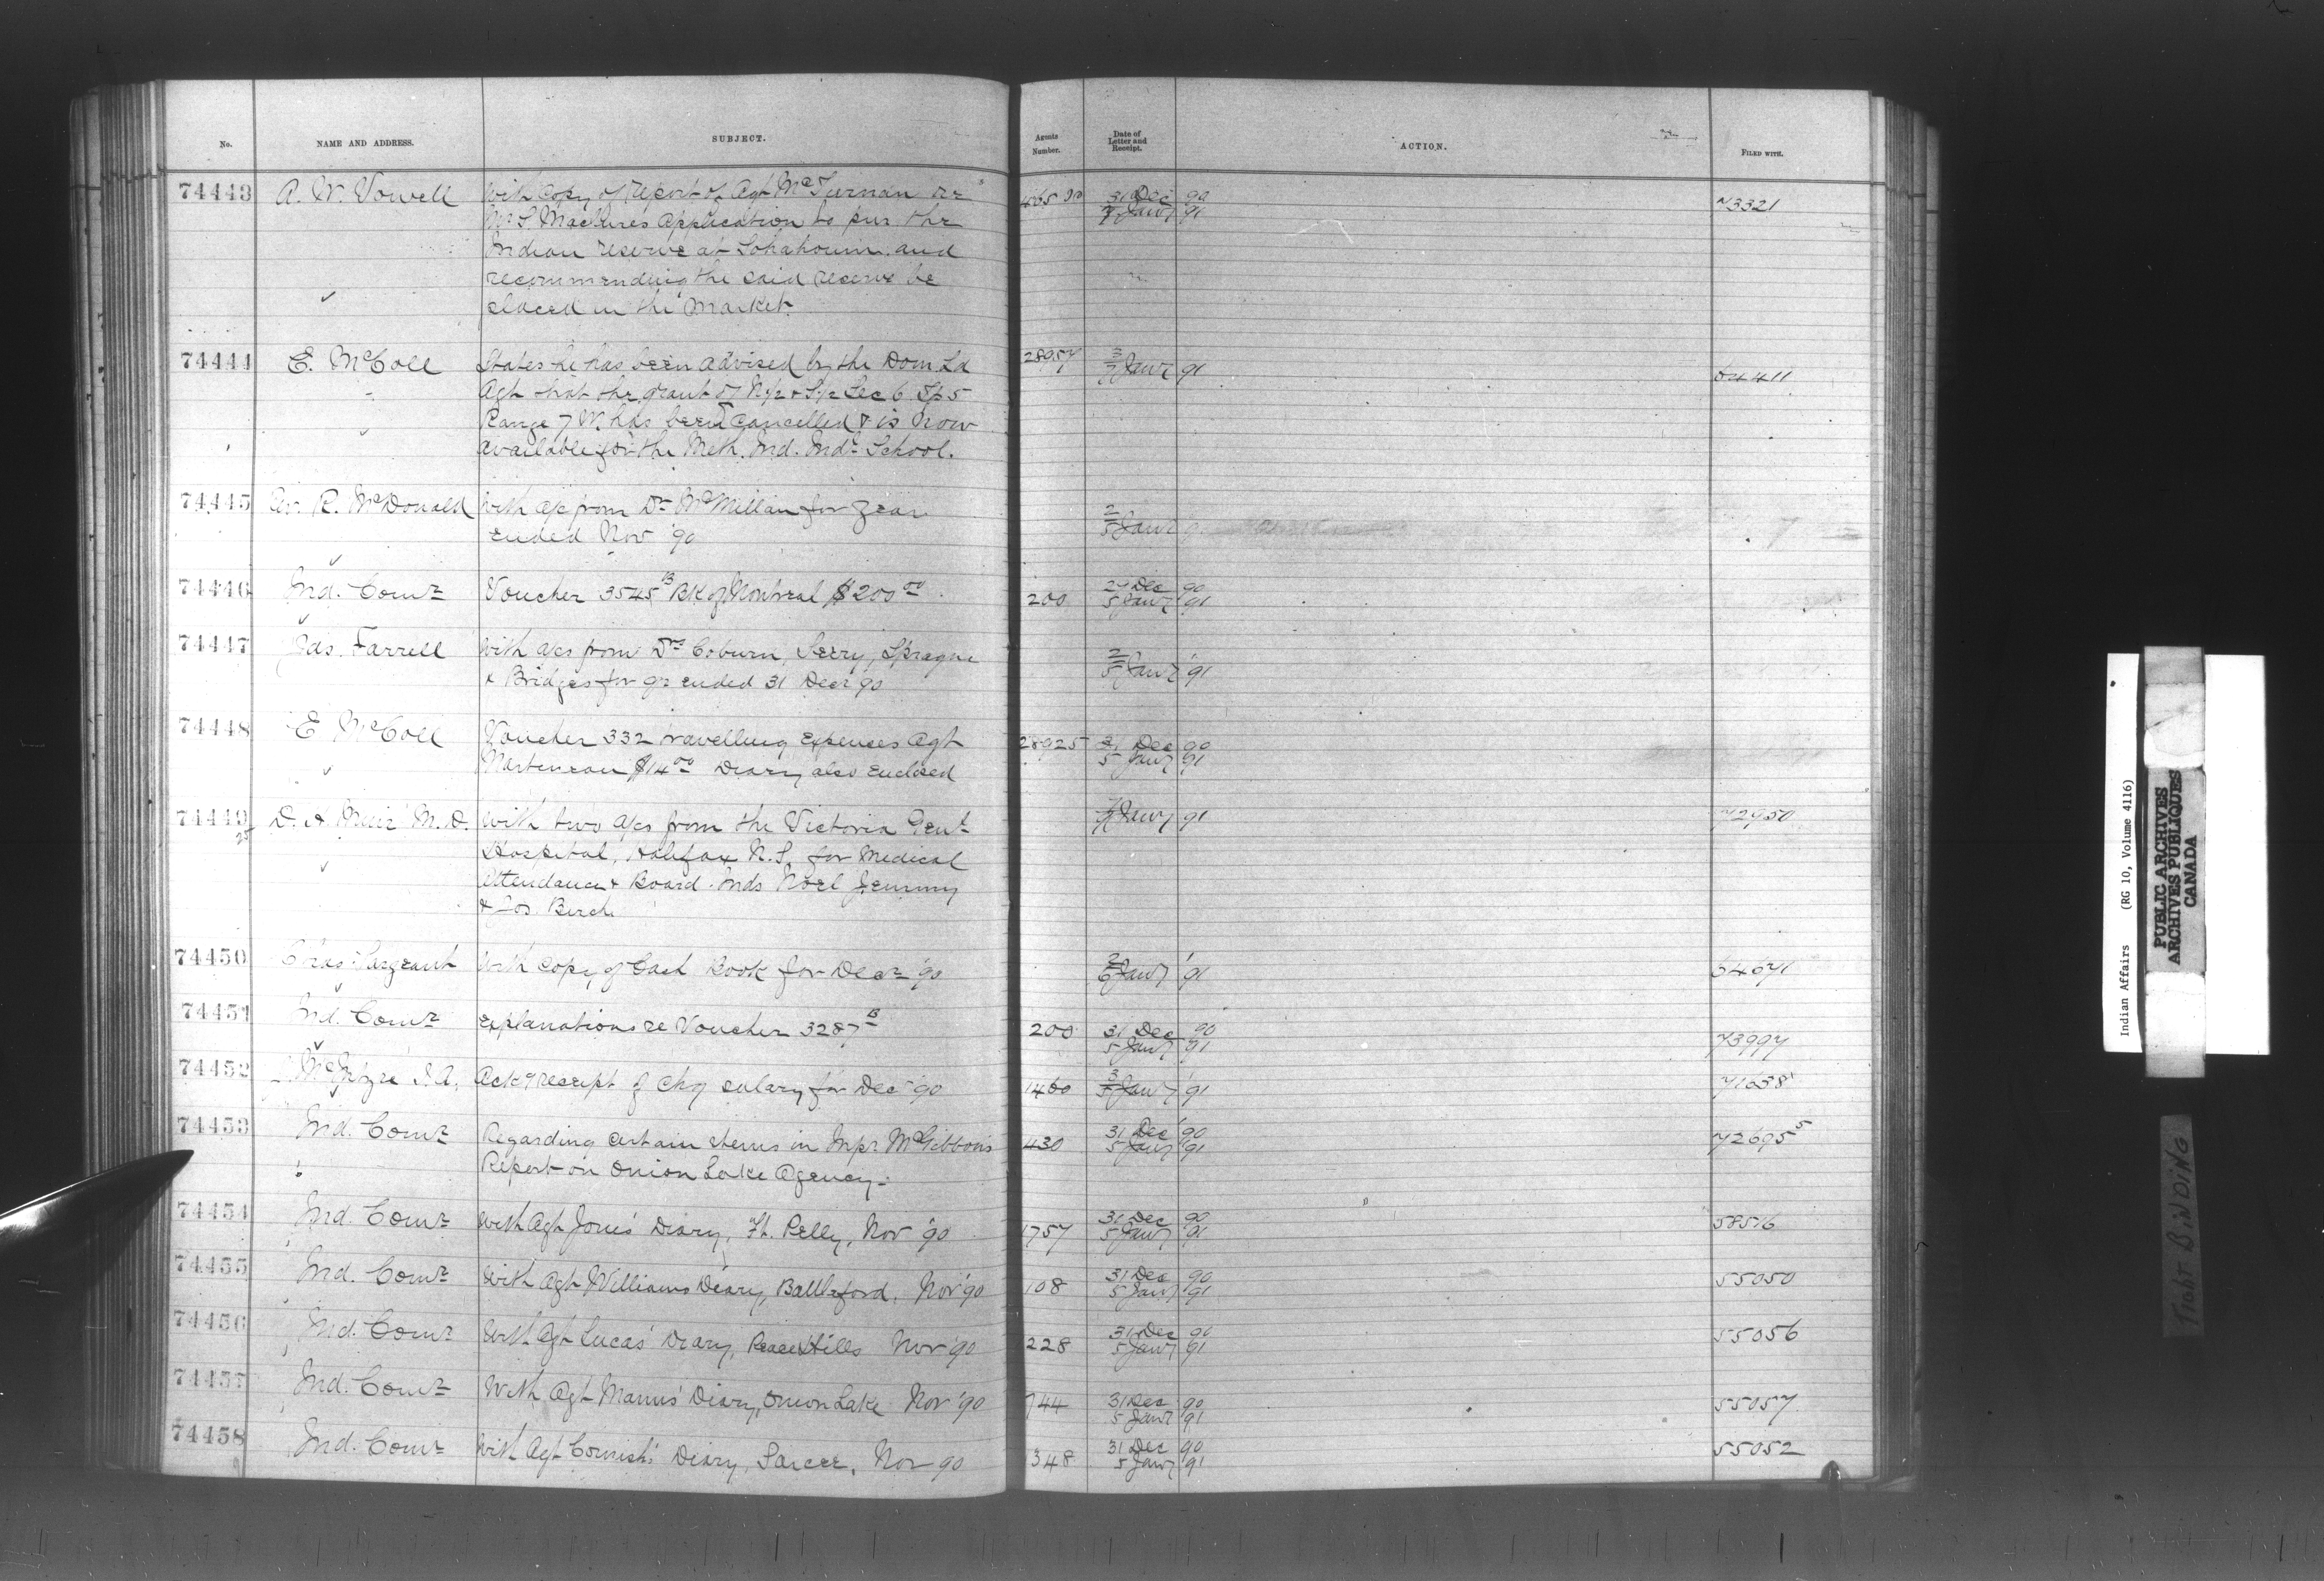 No. NAME AND ADDRESS. SUBJECT. Agents Number. Date of Letter and Receipt. ACTION. FILED WITH.
74443 A. W. Vowell With Copy of report of Agt McTiernan re 465 31 Dec 90 73321
application to pur the 7 Jany 91
Indian reserve at and
recommending the said reserve be
placed in the market.
74444 E. McColl States he has been advised by the Dom Ld 28957 3/7 Jany 91 54411
Agt that the grant of N 1/2 & S 1/2 Sec 6 Tp 5
Range 7 W. has been cancelled & is now
available for the Meth. Ind. Indl School.
74445 R. McDonald With a/c from Dr McMillan for year 2/5 Jany
ended Nov '90
74446 Ind. Comr Voucher 3545 B Bk of Montreal $200 00 200 27 Dec 90
5 Jany 91
74447 Jas. Farrell With a/cs from Drs Coburn, Terry, Sprague 2/5 Jany '91
& Bridges for qr ended 31 Decr '90
74448 E McColl Voucher 332 travelling expenses Agt 28925 31 Dec 90
Martineau $14 00 Diary also enclosed 5 Jany 91
74449 D. A. Muir M.D. With two a/cs from the Victoria Genl Jany 91 72950
25 Hospital, Halifax N.S. for medical
attendance & Board Inds Noel Jemmy
& Jos. Birch
74450 Chas Sargeant With copy of Cash Book for Decr '90 2/6 Jany '91 64671
74451 Ind. Comr Explanations re Voucher 3287 B 200 31 Dec 90 73997
5 Jany 91
74452 McIntyre I.A. Ackg receipt of chq salary for Dec '90 1460 3/5 Jany '91 71638
74453 Ind. Comr Regarding certain items in Inpr McGibbon's 430 31 Dec 90 72695 5
Report on Onion Lake Agency. 5 Jany 91
74454 Ind. Comr With Agt Jones' Diary, Ft. Pelly, Nov '90 1757 31 Dec 90 58516
5 Jany 91
74455 Ind. Comr With Agt Williams Diary, Battleford, Nov '90 108 31 Dec 90 55050
5 Jany 91
74456 Ind. Comr With Agt Lucas' Diary, Peace Hills Nov '90 228 31 Dec 90 55056
5 Jany 91
74457 Ind. Comr With Agt Manns' Diary, Onion Lake Nov '90 744 31 Dec 90 55057
5 Jany 91
74458 Ind. Comr With Agt Cornish's Diary, Sarcee, Nov 90 348 31 Dec 90 55052
5 Jany 91
Indian Affairs (RG 10, Volume 4116)
PUBLIC ARCHIVES
ARCHIVES PUBLIQUES
CANADA
TIGHT BINDING